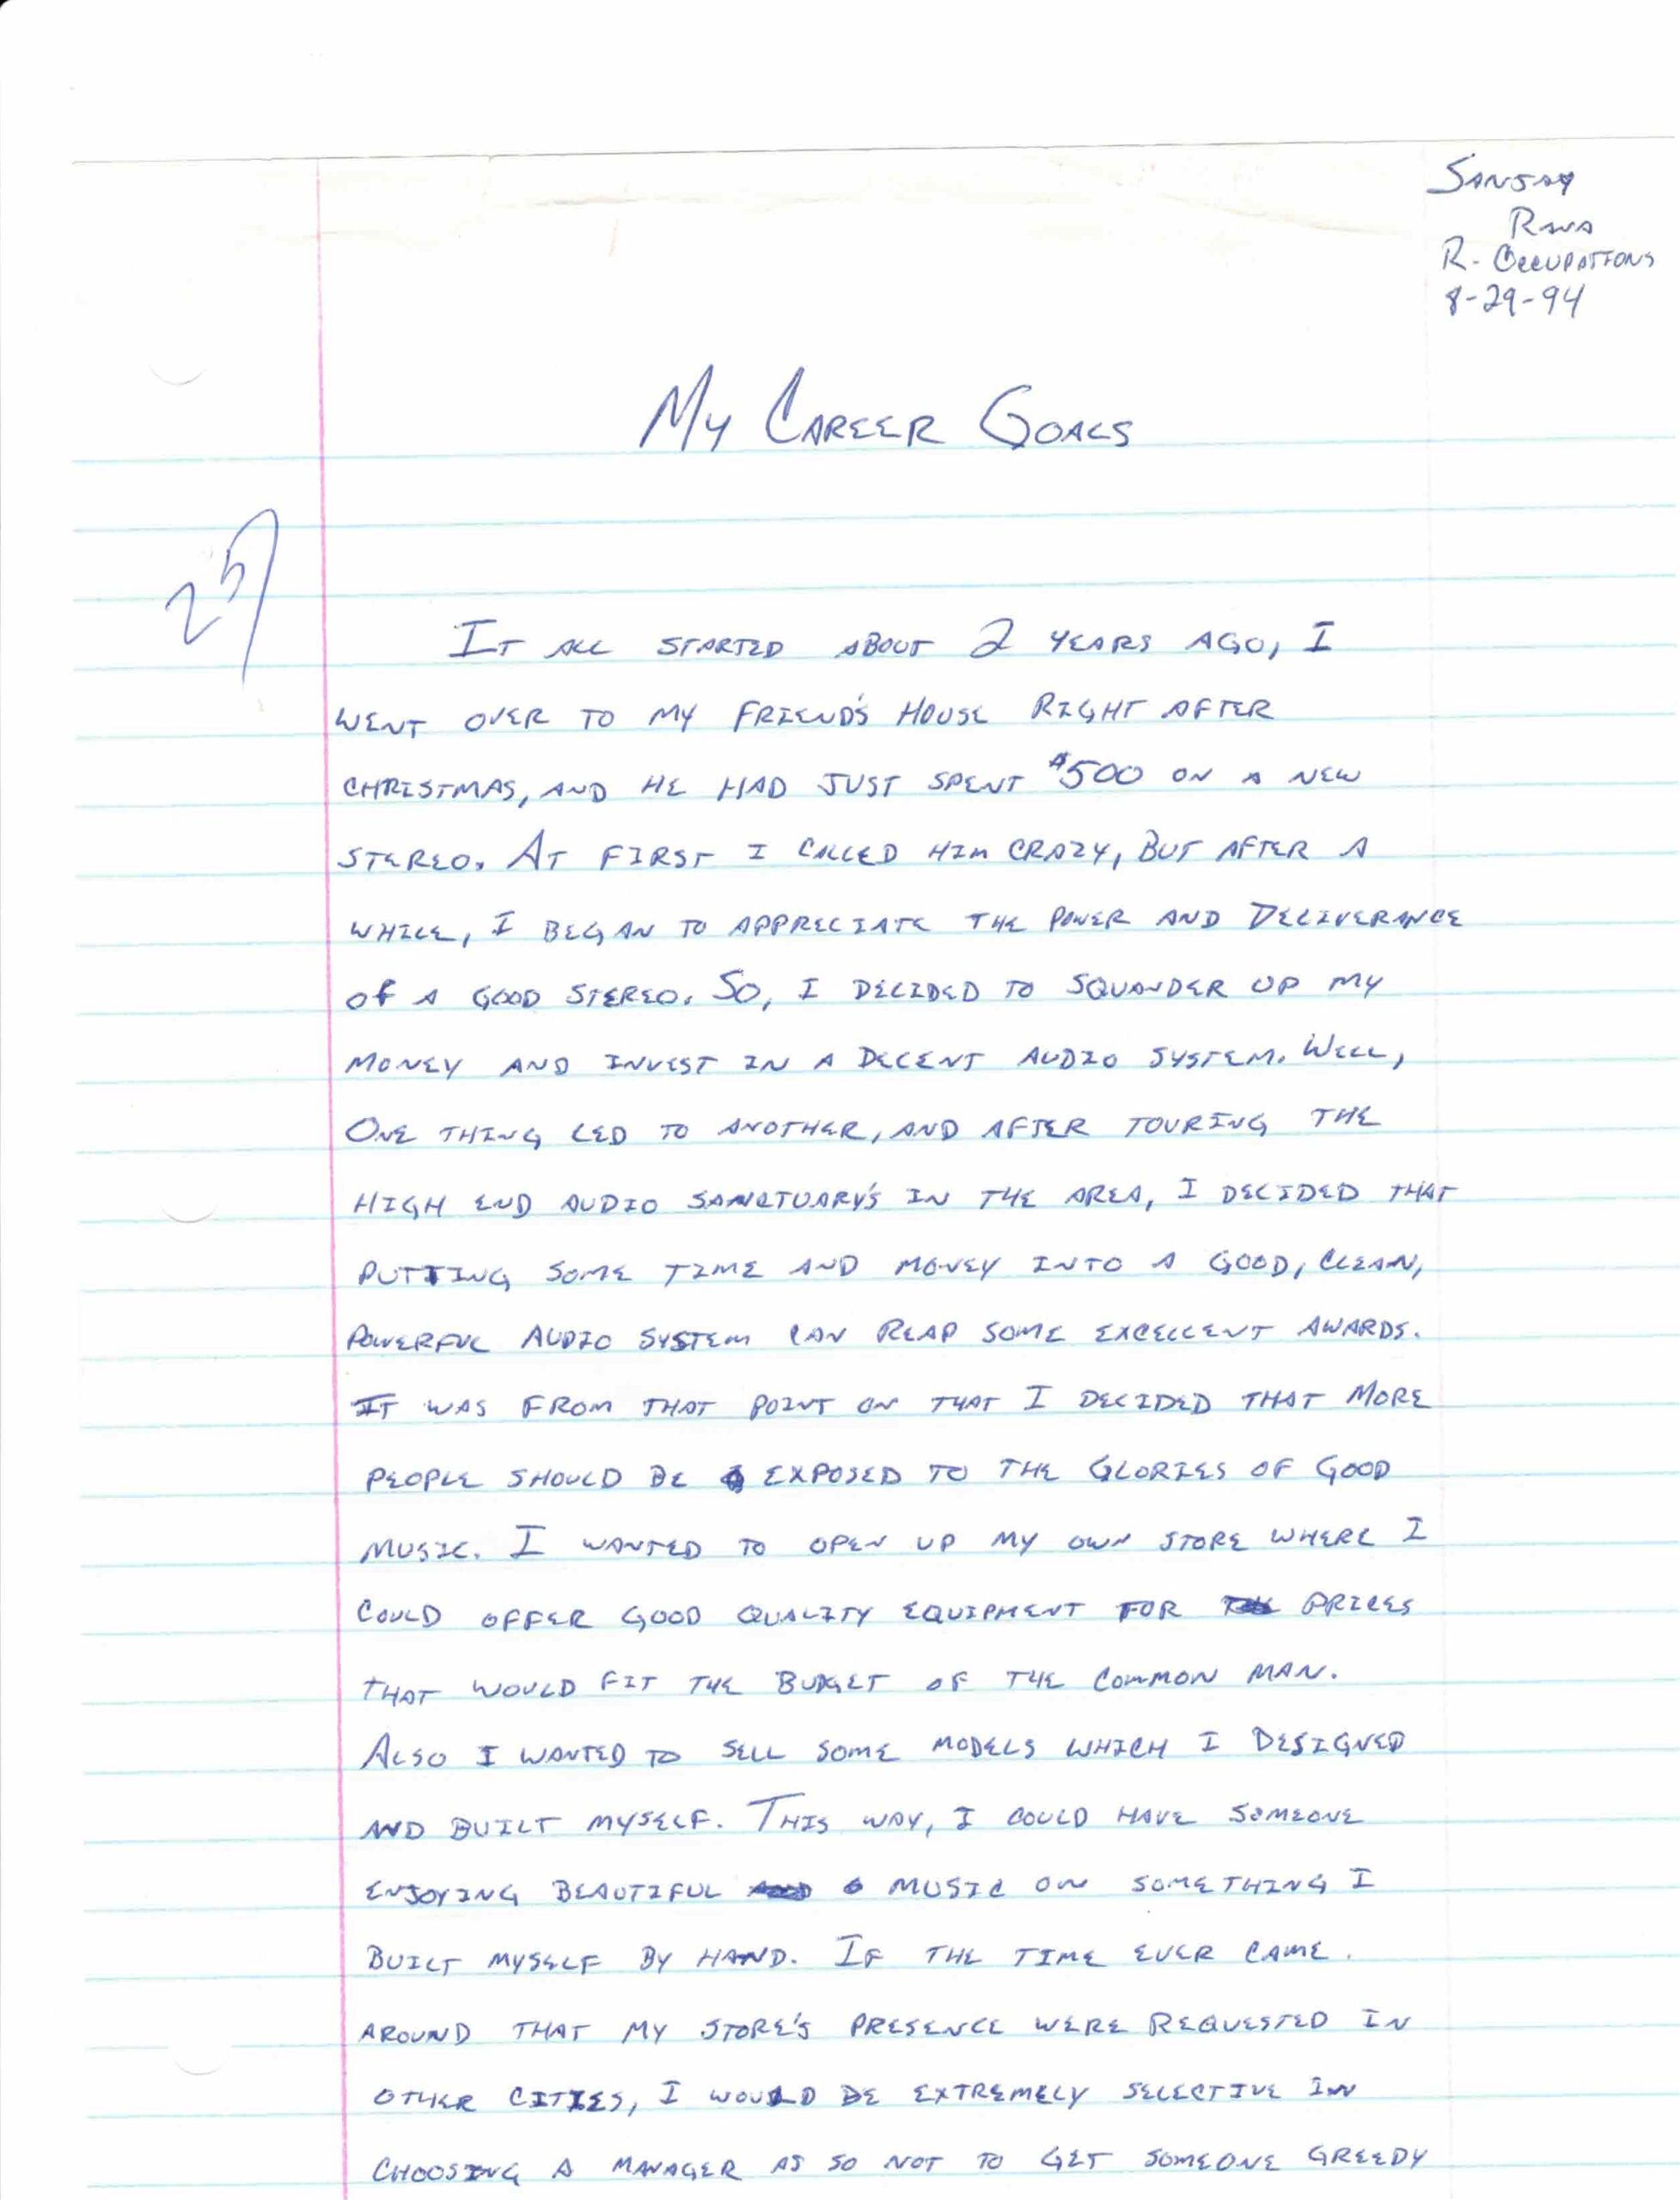 SANJAY
RANA
R. OCCUPATIONS
8-29-94
MY CAREER GOALS
25
IT ALL STARTED ABOUT 2 YEARS AGO, I
WENT OVER TO MY FRIEND'S HOUSE RIGHT AFTER
CHRISTMAS, AND HE HAD JUST SPENT $500 ON A NEW
STEREO. AT FIRST I CALLED HIM CRAZY, BUT AFTER A
WHILE, I BEGAN TO APPRECIATE THE POWER AND DELIVERANCE
OF A GOOD STEREO. SO, I DECIDED TO SQUANDER UP MY
MONEY AND INVEST IN A DECENT AUDIO SYSTEM. WELL,
ONE THING LED TO ANOTHER, AND AFTER TOURING THE
HIGH END AUDIO SANCTUARY'S IN THE AREA, I DECIDED THAT
PUTTING SOME TIME AND MONEY INTO A GOOD, CLEAN,
POWERFUL AUDIO SYSTEM CAN REAP SOME EXCELLENT AWARDS.
IT WAS FROM THAT POINT ON THAT I DECIDED THAT MORE
PEOPLE SHOULD BE EXPOSED TO THE GLORIES OF GOOD
MUSIC. I WANTED TO OPEN UP MY OWN STORE WHERE I
COULD OFFER GOOD QUALITY EQUIPMENT FOR PRICES
THAT WOULD FIT THE BUDGET OF THE COMMON MAN.
ALSO I WANTED TO SELL SOME MODELS WHICH I DESIGNED
AND BUILT MYSELF. THIS WAY, I COULD HAVE SOMEONE
ENJOYING BEAUTIFUL MUSIC ON SOMETHING I
BUILT MYSELF BY HAND. IF THE TIME EVER CAME
AROUND THAT MY STORE'S PRESENCE WERE REQUESTED IN
OTHER CITIES, I WOULD BE EXTREMELY SELECTIVE IN
CHOOSING A MANAGER AS SO NOT TO GET SOMEONE GREEDY